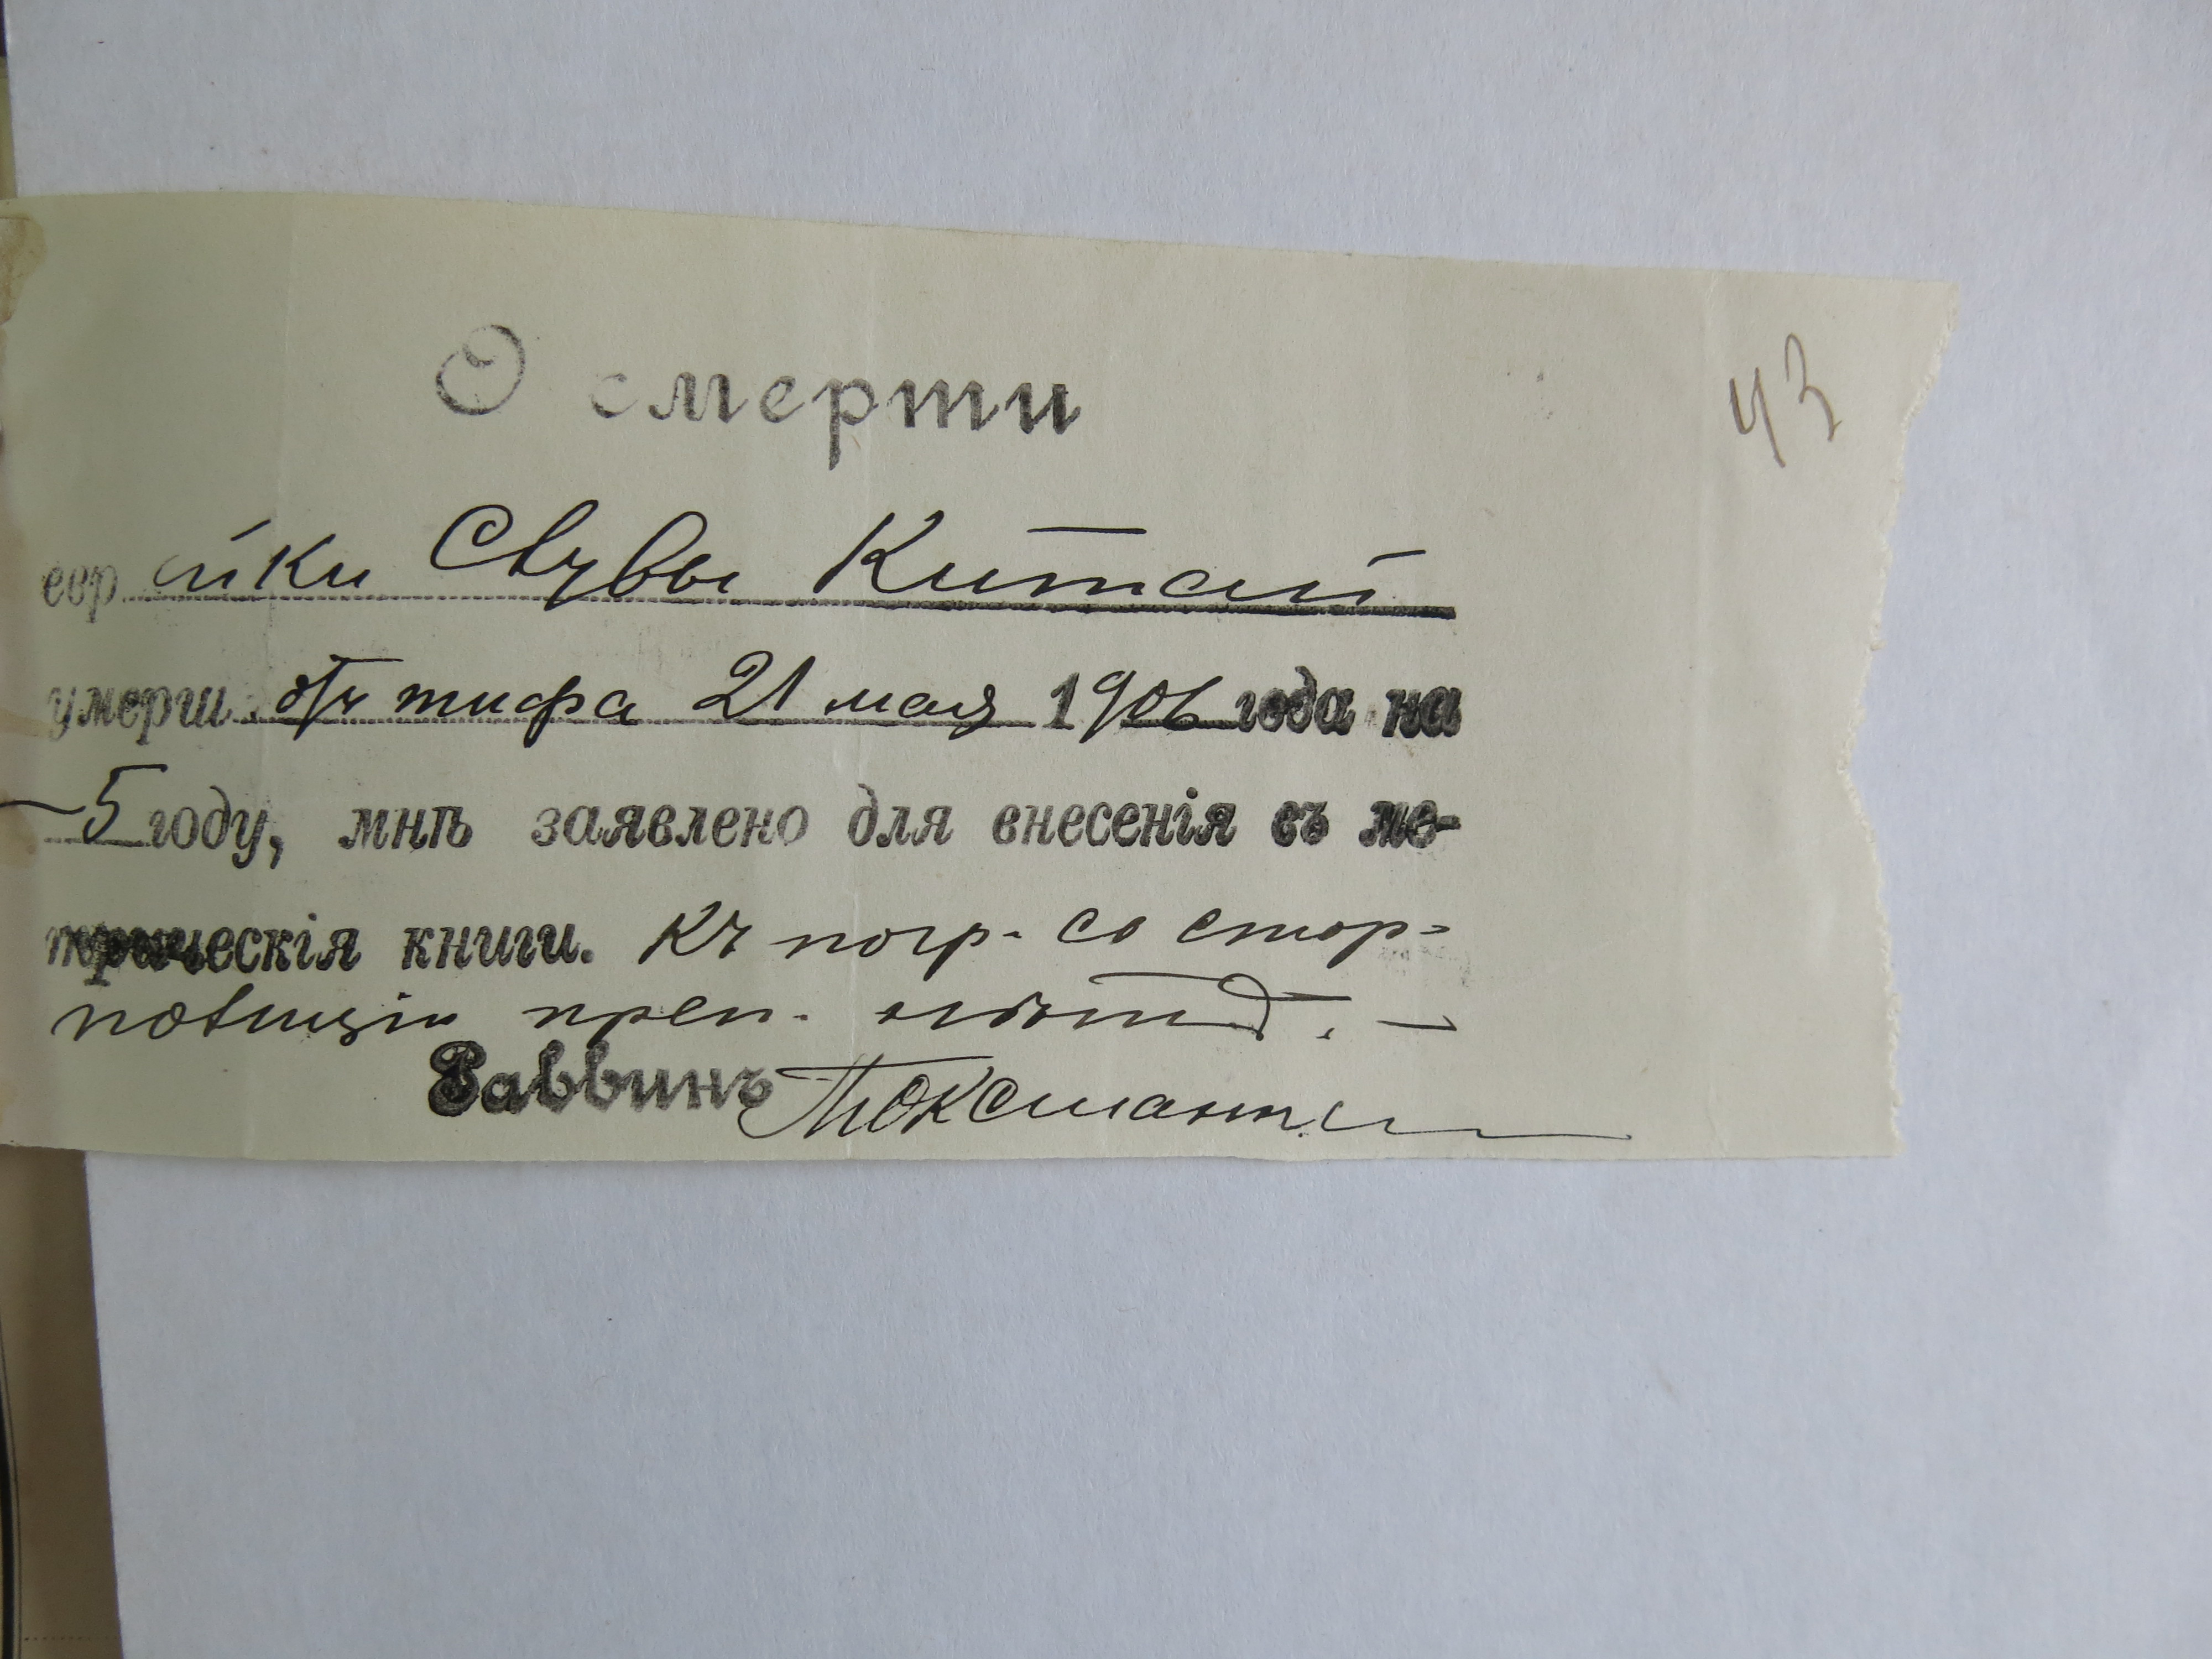 О смерти
43
еврейки Китай
умерш. отъ тифа 21 мая 1906 года на
5 году, мнѣ заявлено для внесенія въ ме-
трическія книги. Къ погр. со стор-
полиціи преп.
Раввинъ